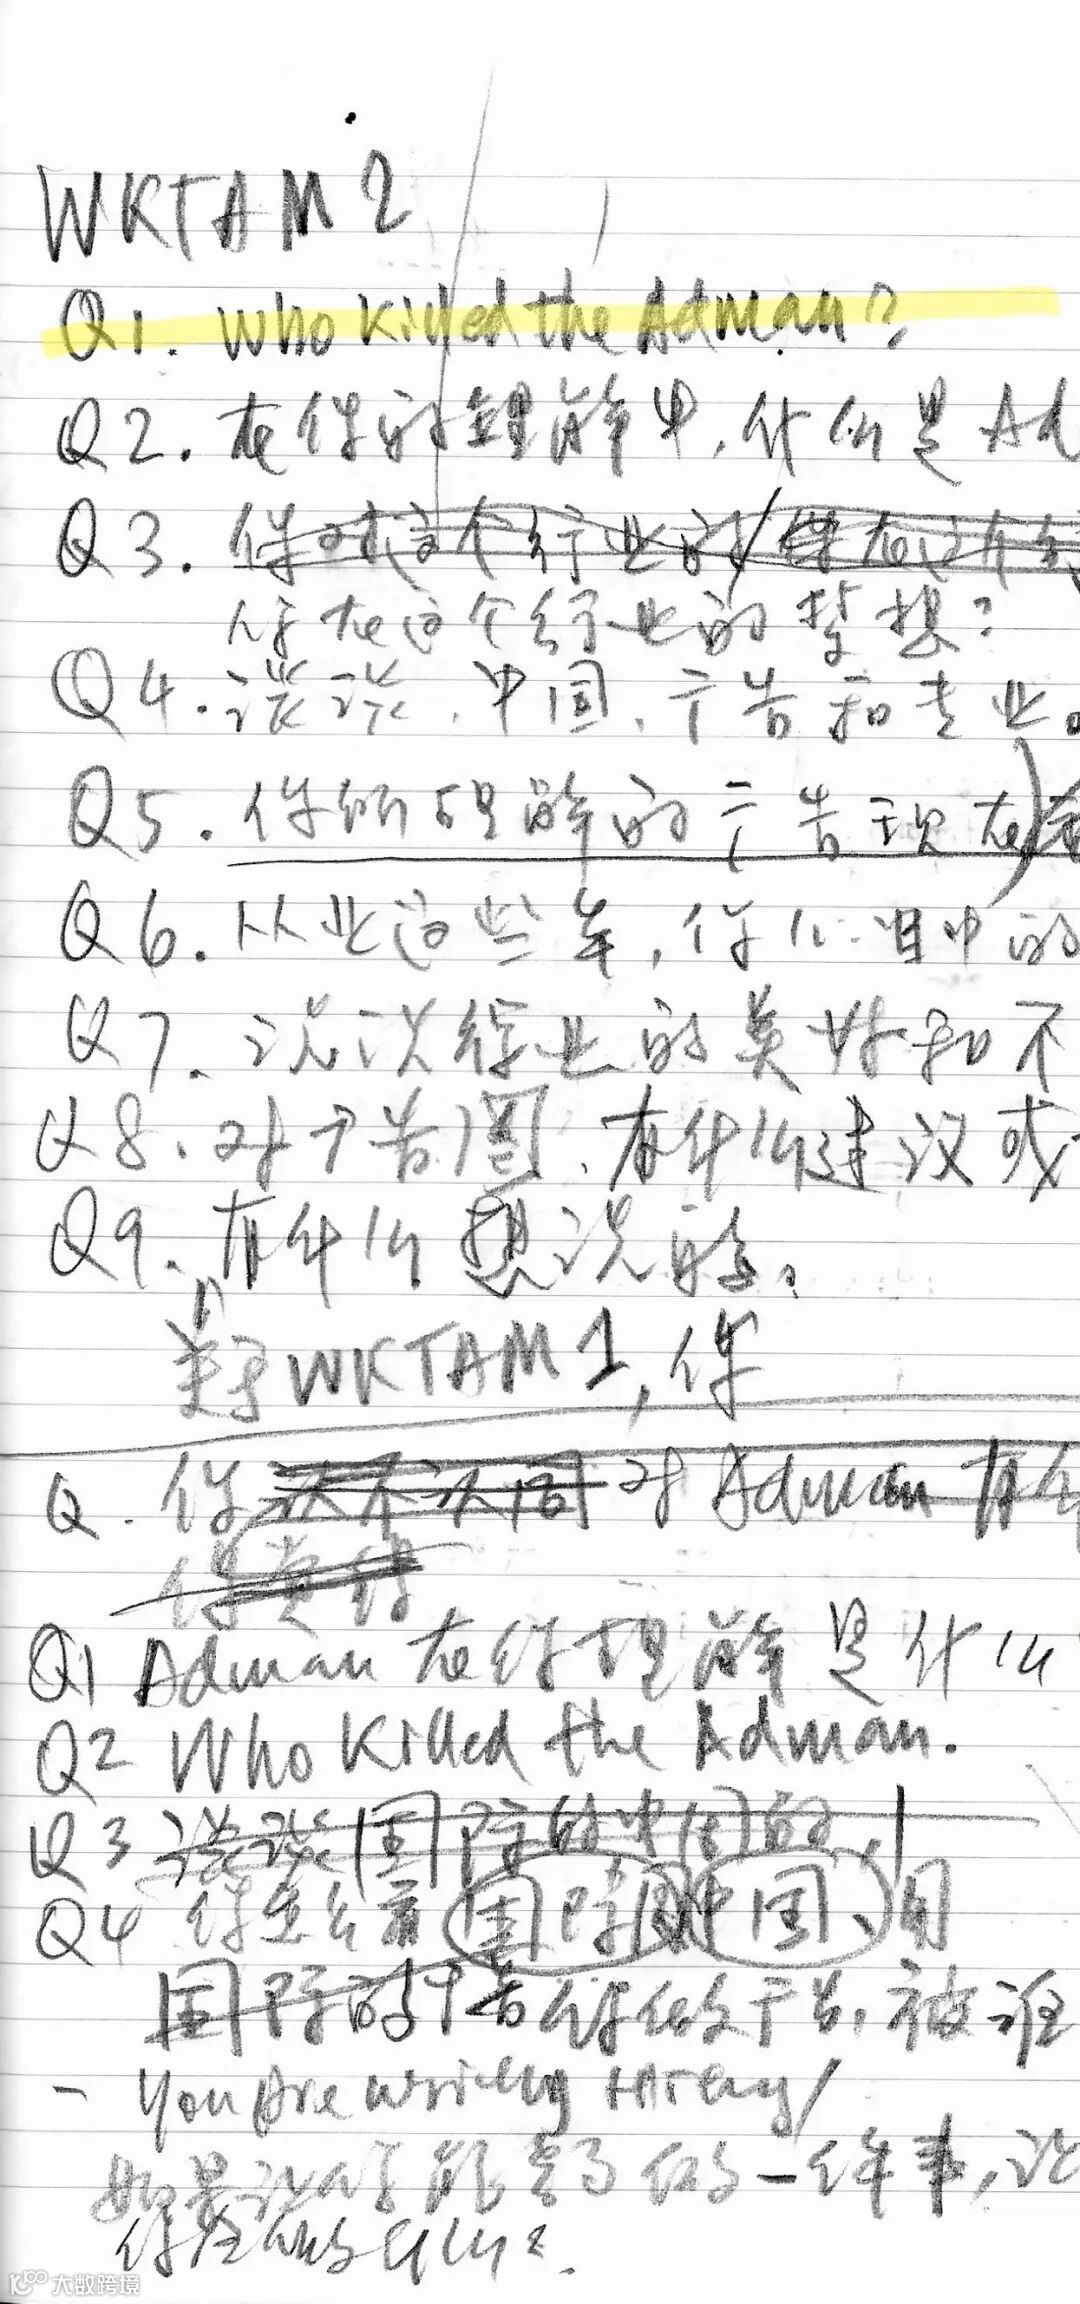 WKTAM 2
Q1. Who Killed the Adman?
Q2. 在你的理解中,什么是 Ad
Q3. 你对这个行业的
你在这个行业的梦想?
Q4. 谈谈、中国、广告和专业
Q5. 你所理解的广告现在
Q6. 从业这些年,你心目中的
Q7. 说说行业的美好和不
Q8. 对广告圈、有什么建议或
Q9. 有什么想说的。
关于WKTAM 1, 你
Q. 你认不认同对 Adman 有什
你觉得
Q1 Adman 在你理解是什么
Q2 Who Killed the Adman.
Q3 谈谈国际的中国的
Q4 国际 中国、用
国际的 你做广告,被谁
- You Are History/
如果说你能为 做一件事,
你会做什么?
大数跨境